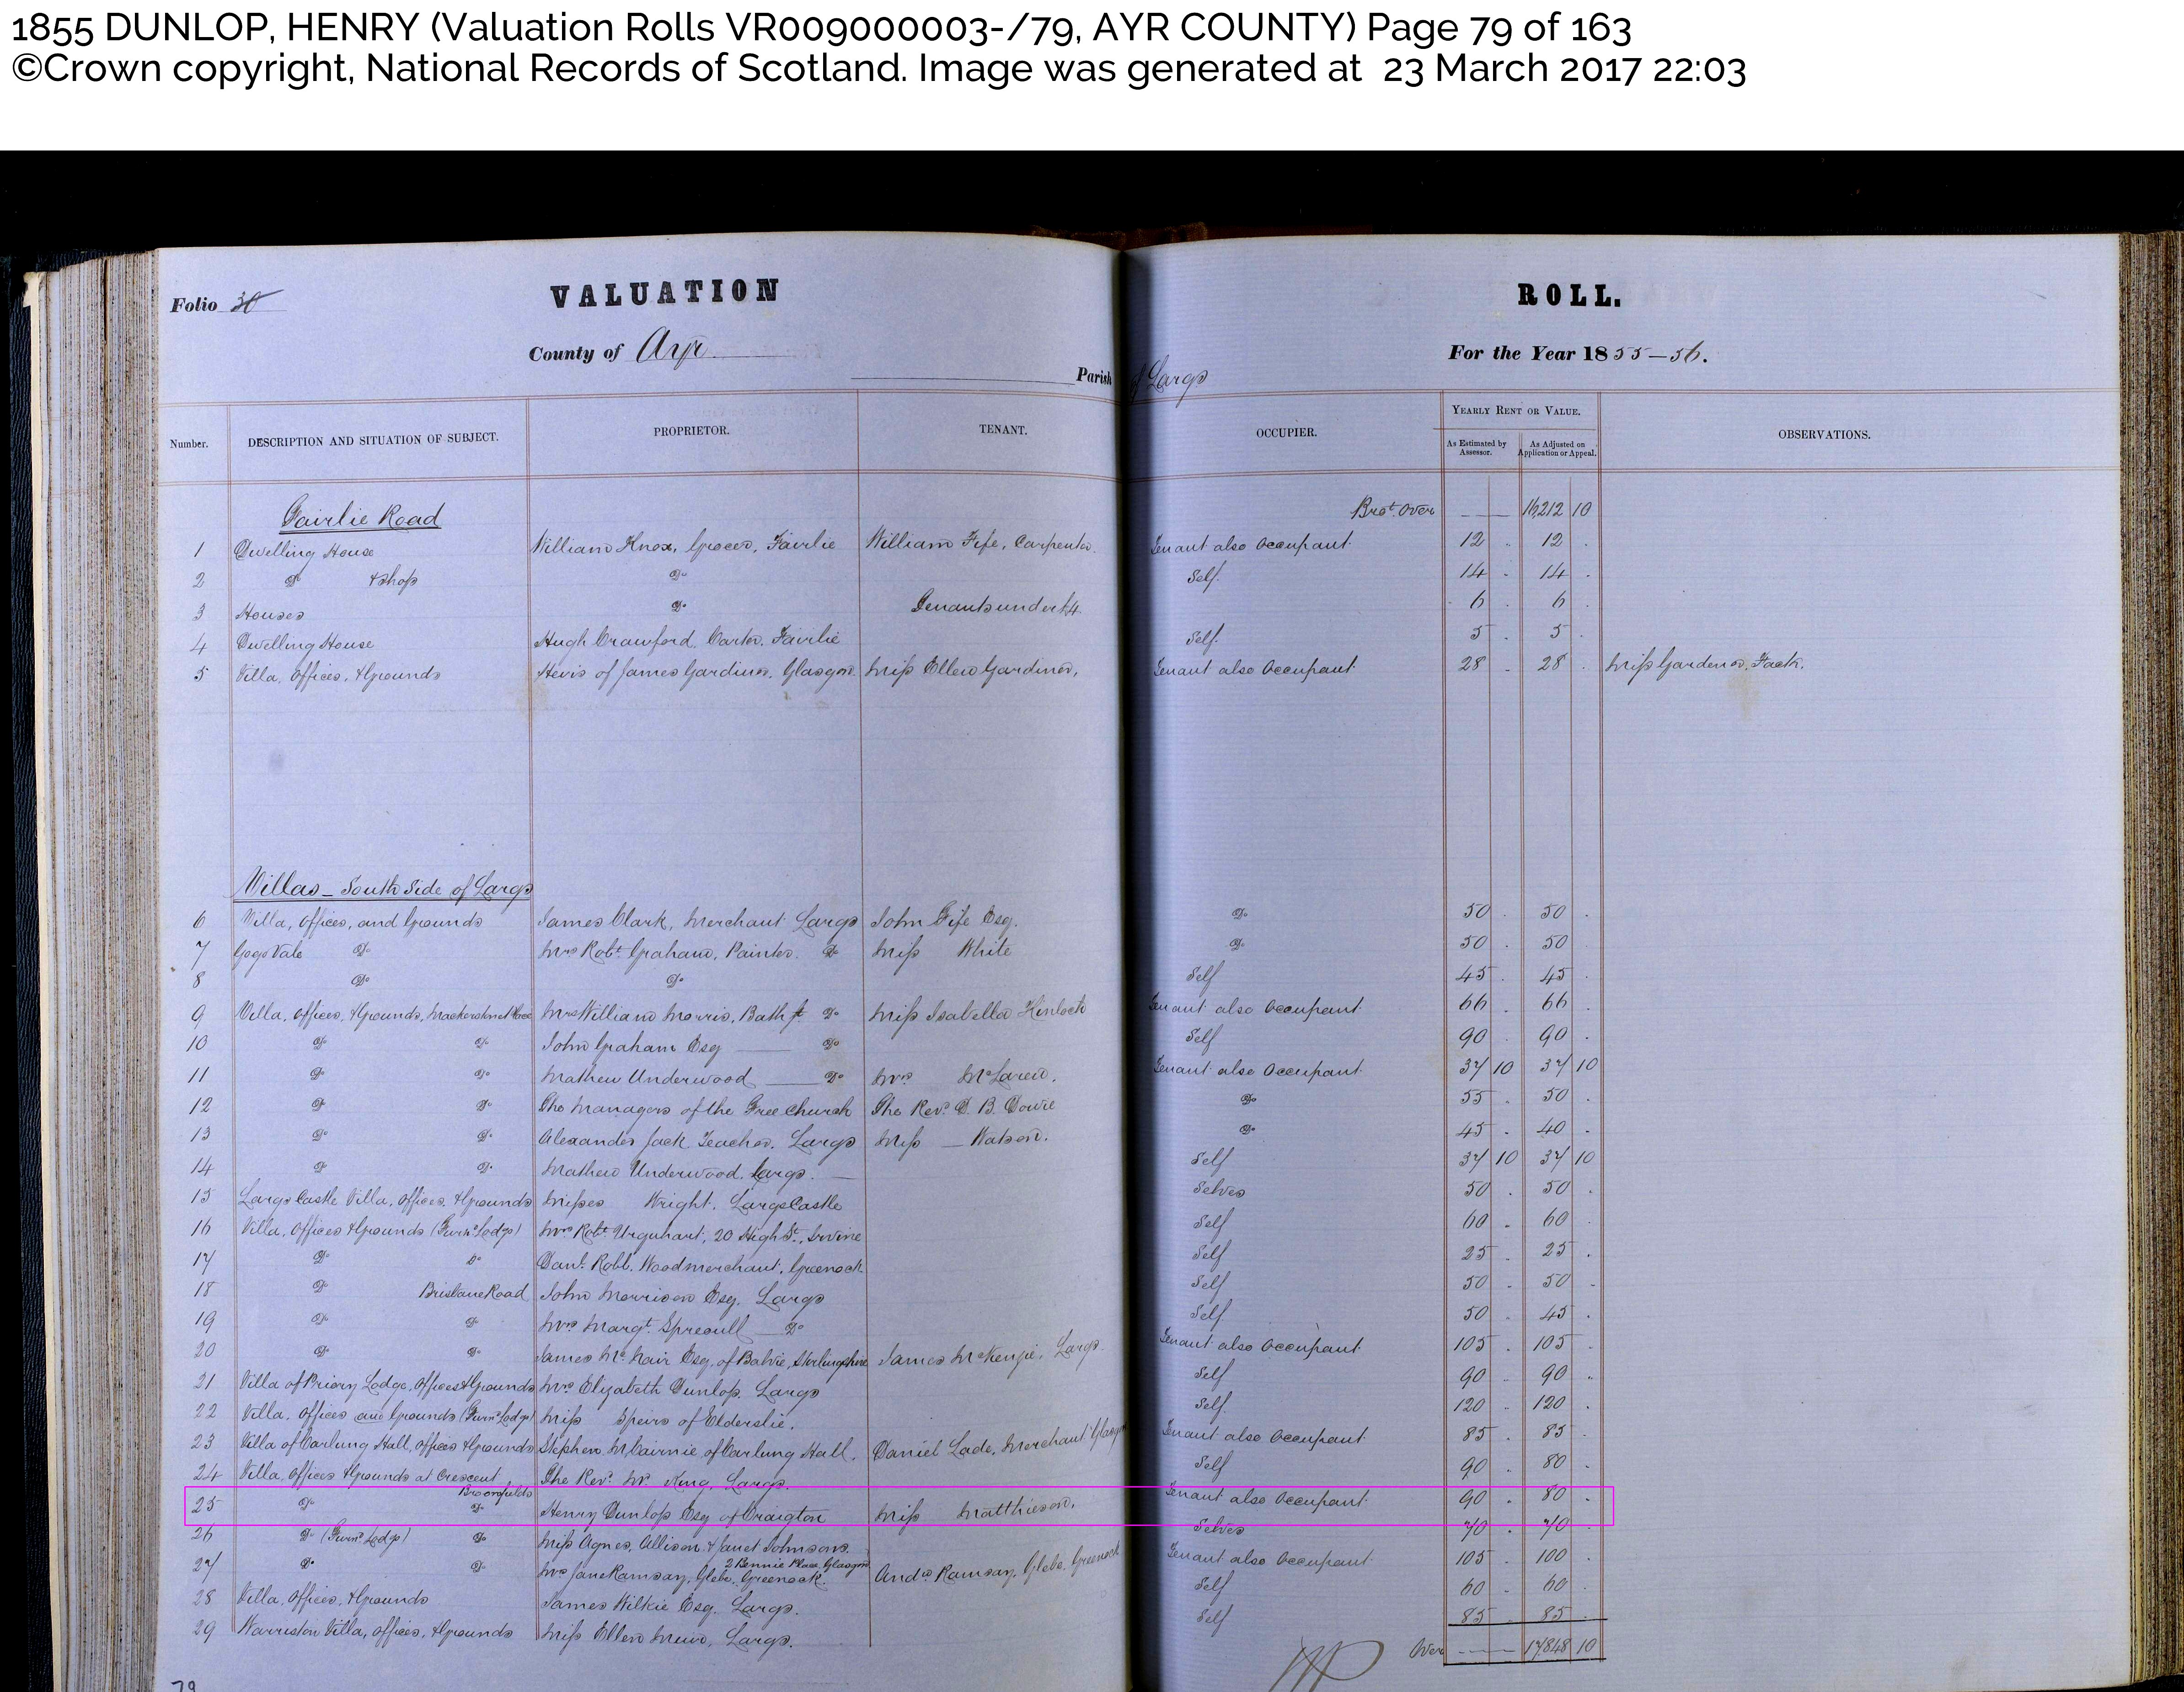 1855 DUNLOP, HENRY (Valuation Rolls VR009000003-/79, AYR COUNTY) Page 79 of 163
©Crown copyright, National Records of Scotland. Image was generated at 23 March 2017 22:03
Folio 30 VALUATION ROLL.
County of Ayr For the Year 1855-56.
Parish of Largs
Number. DESCRIPTION AND SITUATION OF SUBJECT. PROPRIETOR. TENANT. OCCUPIER. YEARLY RENT OR VALUE. OBSERVATIONS.
As Estimated by Assessor. As Adjusted on Application or Appeal.
Fairlie Road Brot. Over 16,212 10
1 Dwelling House William Knox, Grocer, Fairlie William Fife, Carpenter. Tenant also Occupant 12 . 12 .
2 Do & Shop Do Self. 14 . 14 .
3 Houses Do Tenants under £4 6 . 6 .
4 Dwelling House Hugh Crawford, Carter, Fairlie Self. 5 . 5 .
5 Villa, Offices, & Grounds Heirs of James Gardiner, Glasgow Miss Ellen Gardiner, Tenant also Occupant 28 . 28 . Miss Gardener, Factr.
Villas - South Side of Largs
6 Villa, Offices, and Grounds James Clark, Merchant Largs John Fife Esq. Do 50 . 50 .
7 Gogo Vale Do Mrs Robt. Graham, Painter. Do Miss White Do 50 . 50 .
8 Do Do Self 45 . 45 .
9 Villa, Offices, & Grounds, Mackerston Place Mrs William Morris, Bath St Do Miss Isabella Kinloch Tenant also Occupant 66 . 66 .
10 Do Do John Graham Esq Do Self 90 . 90 .
11 Do Do Mathew Underwood Do Mrs McLaren. Tenant also Occupant 37 10 37 10
12 Do Do The Managers of the Free Church The Revd. D. B. Dowie Do 55 . 50 .
13 Do Do Alexander Jack, Teacher, Largs Miss Watson. Do 45 . 40 .
14 Do Do Mathew Underwood, Largs. Self 37 10 37 10
15 Largs Castle Villa, Offices, & Grounds Misses Wright, Largs Castle Selves 50 . 50 .
16 Villa, Offices & Grounds (Furnd. Lodgs) Mrs Robt Urquhart, 20 High St., Irvine Self 60 . 60 .
17 Do Do Danl. Robb, Woodmerchant, Greenock. Self 25 . 25 .
18 Do Brisbane Road John Morrison Esq. Largs Self 50 . 50 .
19 Do Do Mrs Margt. Spreoull Do Self. 50 . 45 .
20 Do Do James McNair Esq. of Balvie, Stirlingshire James McKenzie, Largs. Tenant also Occupant 105 . 105 .
21 Villa of Priory Lodge, Offices & Grounds Mrs Elizabeth Dunlop, Largs Self 90 . 90 .
22 Villa, Offices and Grounds (Furnd. Lodgs) Miss Speirs of Elderslie. Self. 120 . 120 .
23 Villa of Carlung Hall, Offices & Grounds Stephen McCairnie, of Carlung Hall. Daniel Lade, Merchant Glasgow Tenant also Occupant 85 . 85 .
24 Villa, Offices & Grounds at Crescent The Revd. Mr. King, Largs. Self 90 . 80 .
Broomfields
25 Do Do Henry Dunlop Esq of Craigton Miss Matthieson, Tenant also Occupant 90 . 80 .
26 Do (Furnd. Lodgs) Do Miss Agnes, Allison & Janet Johnsons. Selves 70 . 70 .
2 Rennie Place, Glasgow
27 Do Do Mrs Jane Ramsay, Glebe, Greenock. Andw Ramsay, Glebe, Greenock Tenant also Occupant 105 . 100 .
28 Villa, Offices, & Grounds James Wilkie Esq. Largs. Self 60 . 60 .
29 Warriston Villa, Offices, & Grounds Miss Ellen Muir, Largs. Self 85 . 85 .
Over 17,848 10
79